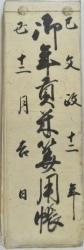 己文政十二年
御年貢米算用帳
丑十二月吉日